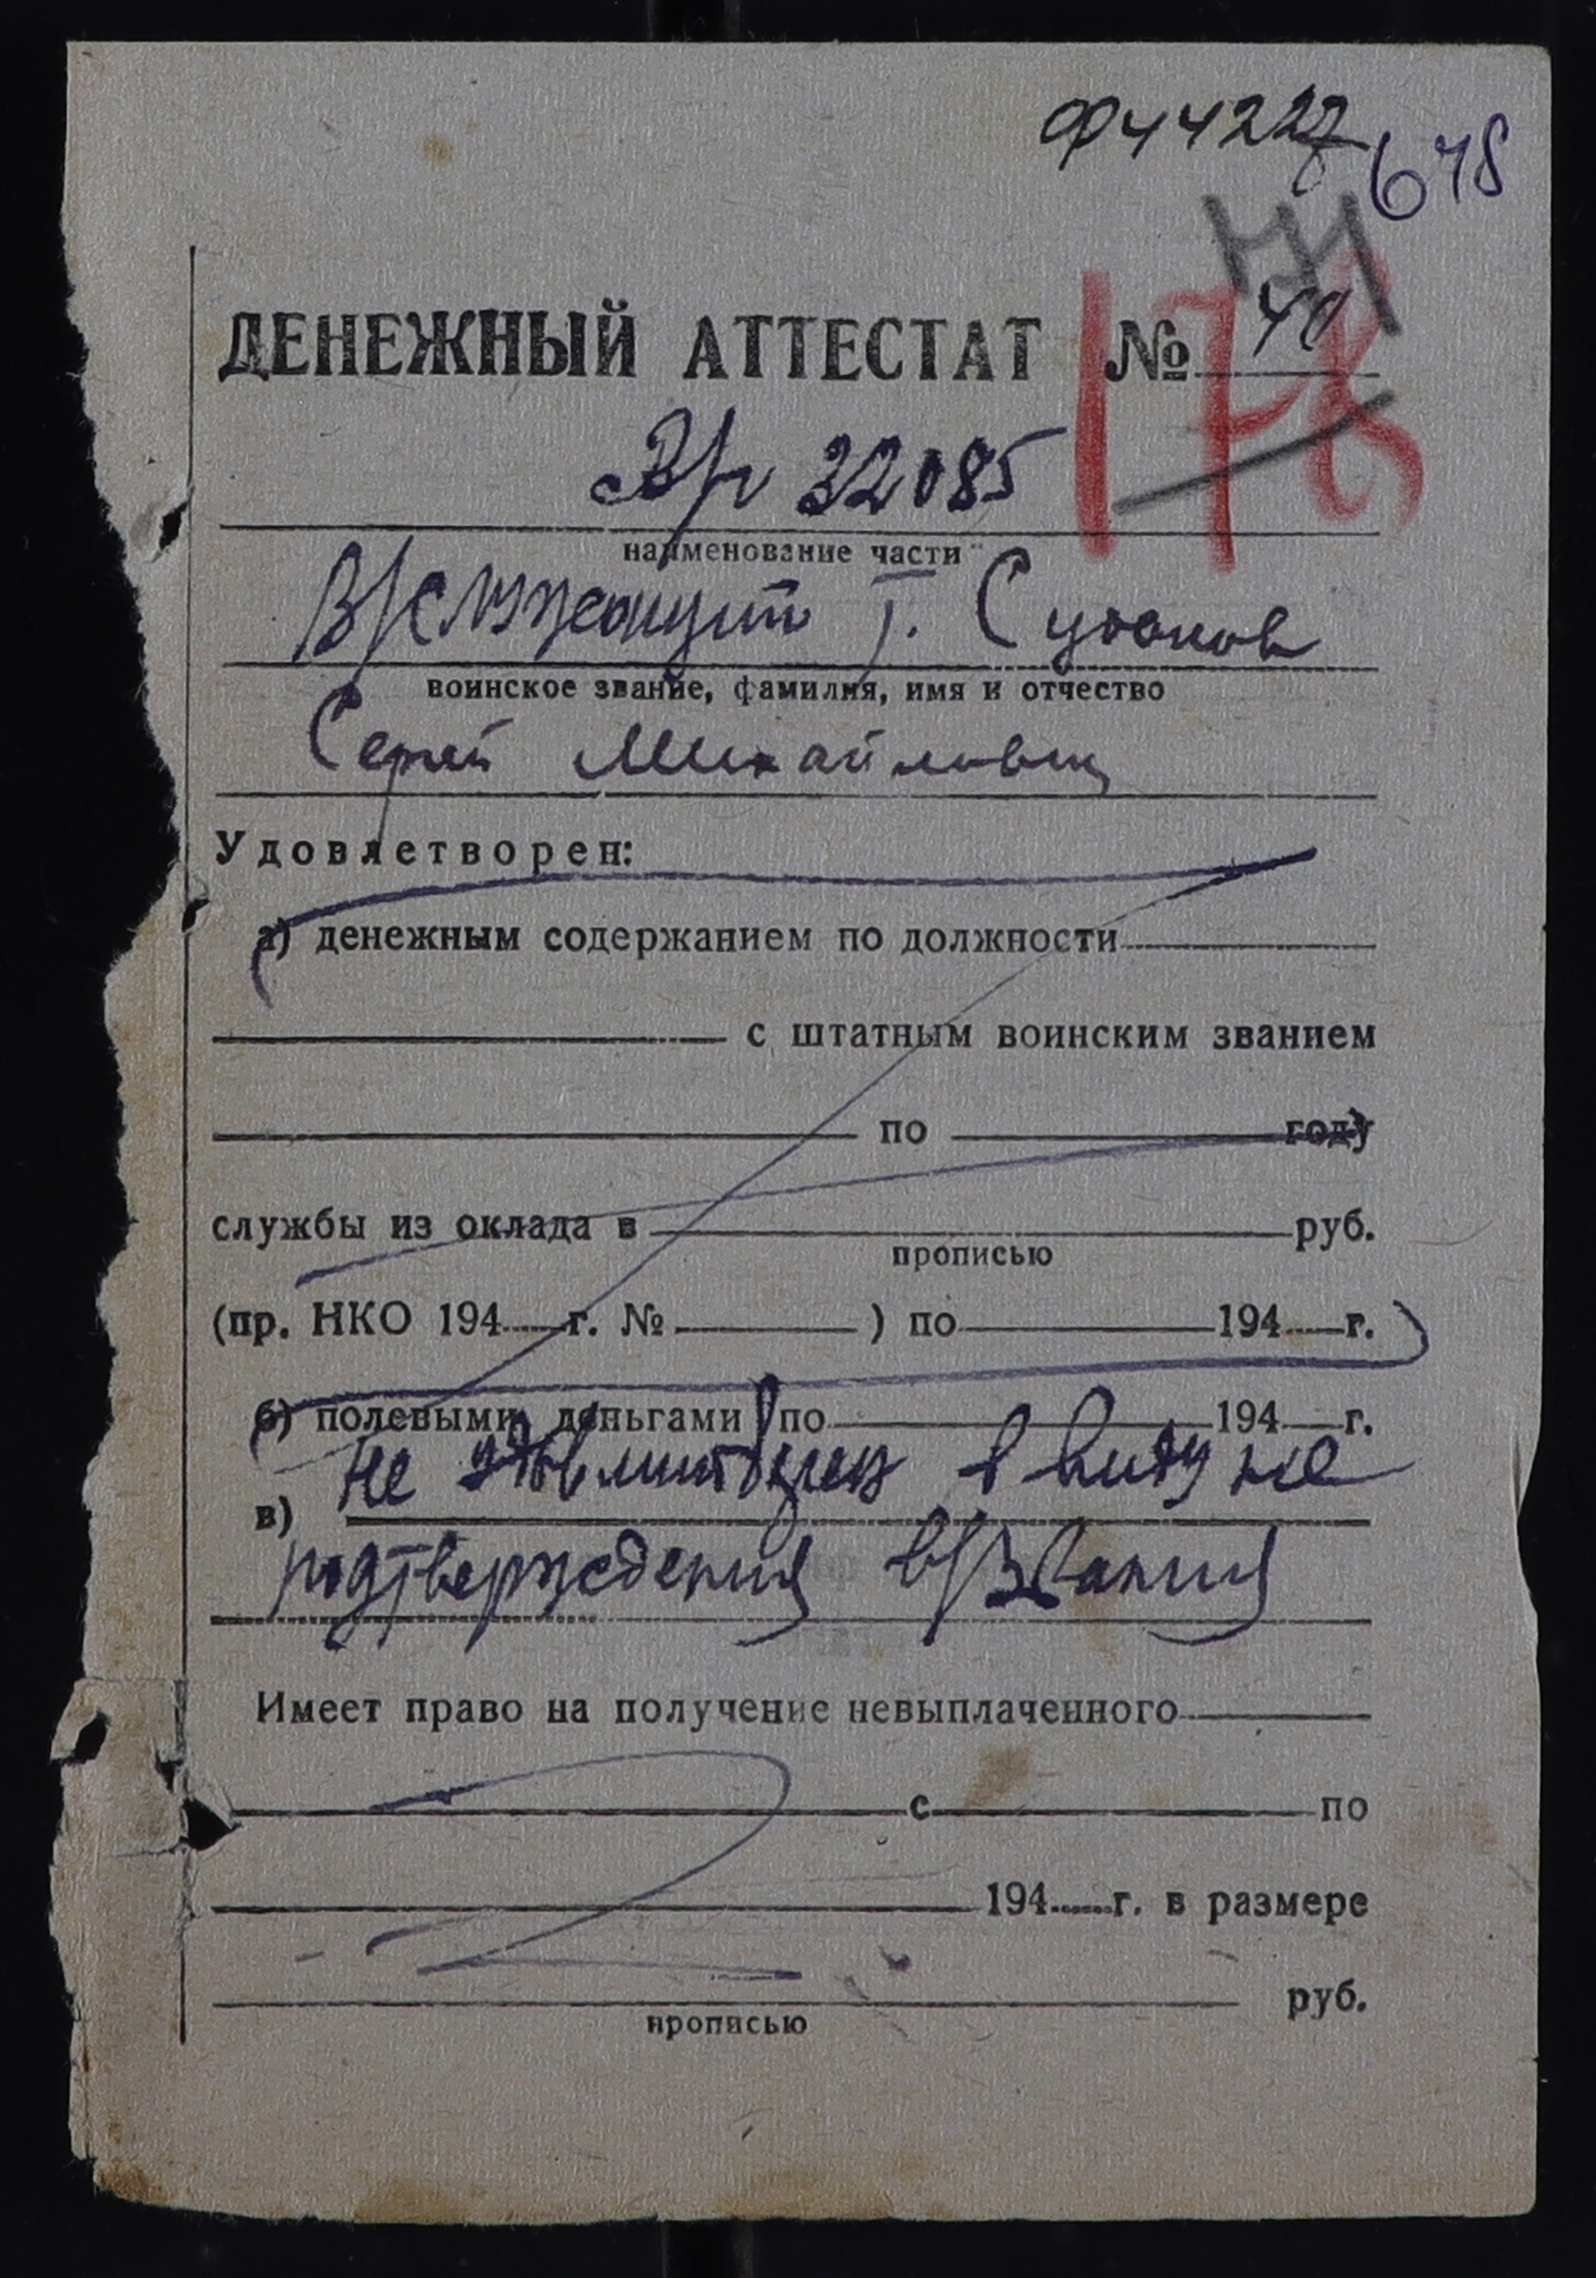 Ф44227
678
ДЕНЕЖНЫЙ АТТЕСТАТ № 40
178
32085
наименование части
В/служащий т.
воинское звание, фамилия, имя и отчество
Сергей Михайлович
Удовлетворен:
а) денежным содержанием по должности
с штатным воинским званием
по году
службы из оклада в руб.
прописью
(пр. НКО 194 г. № ) по 194 г.
б) полевыми деньгами по 194 г.
не удовлетворен в виду не
в)
подтверждения в/звания
Имеет право на получение невыплаченного
с по
194 г. в размере
руб.
прописью